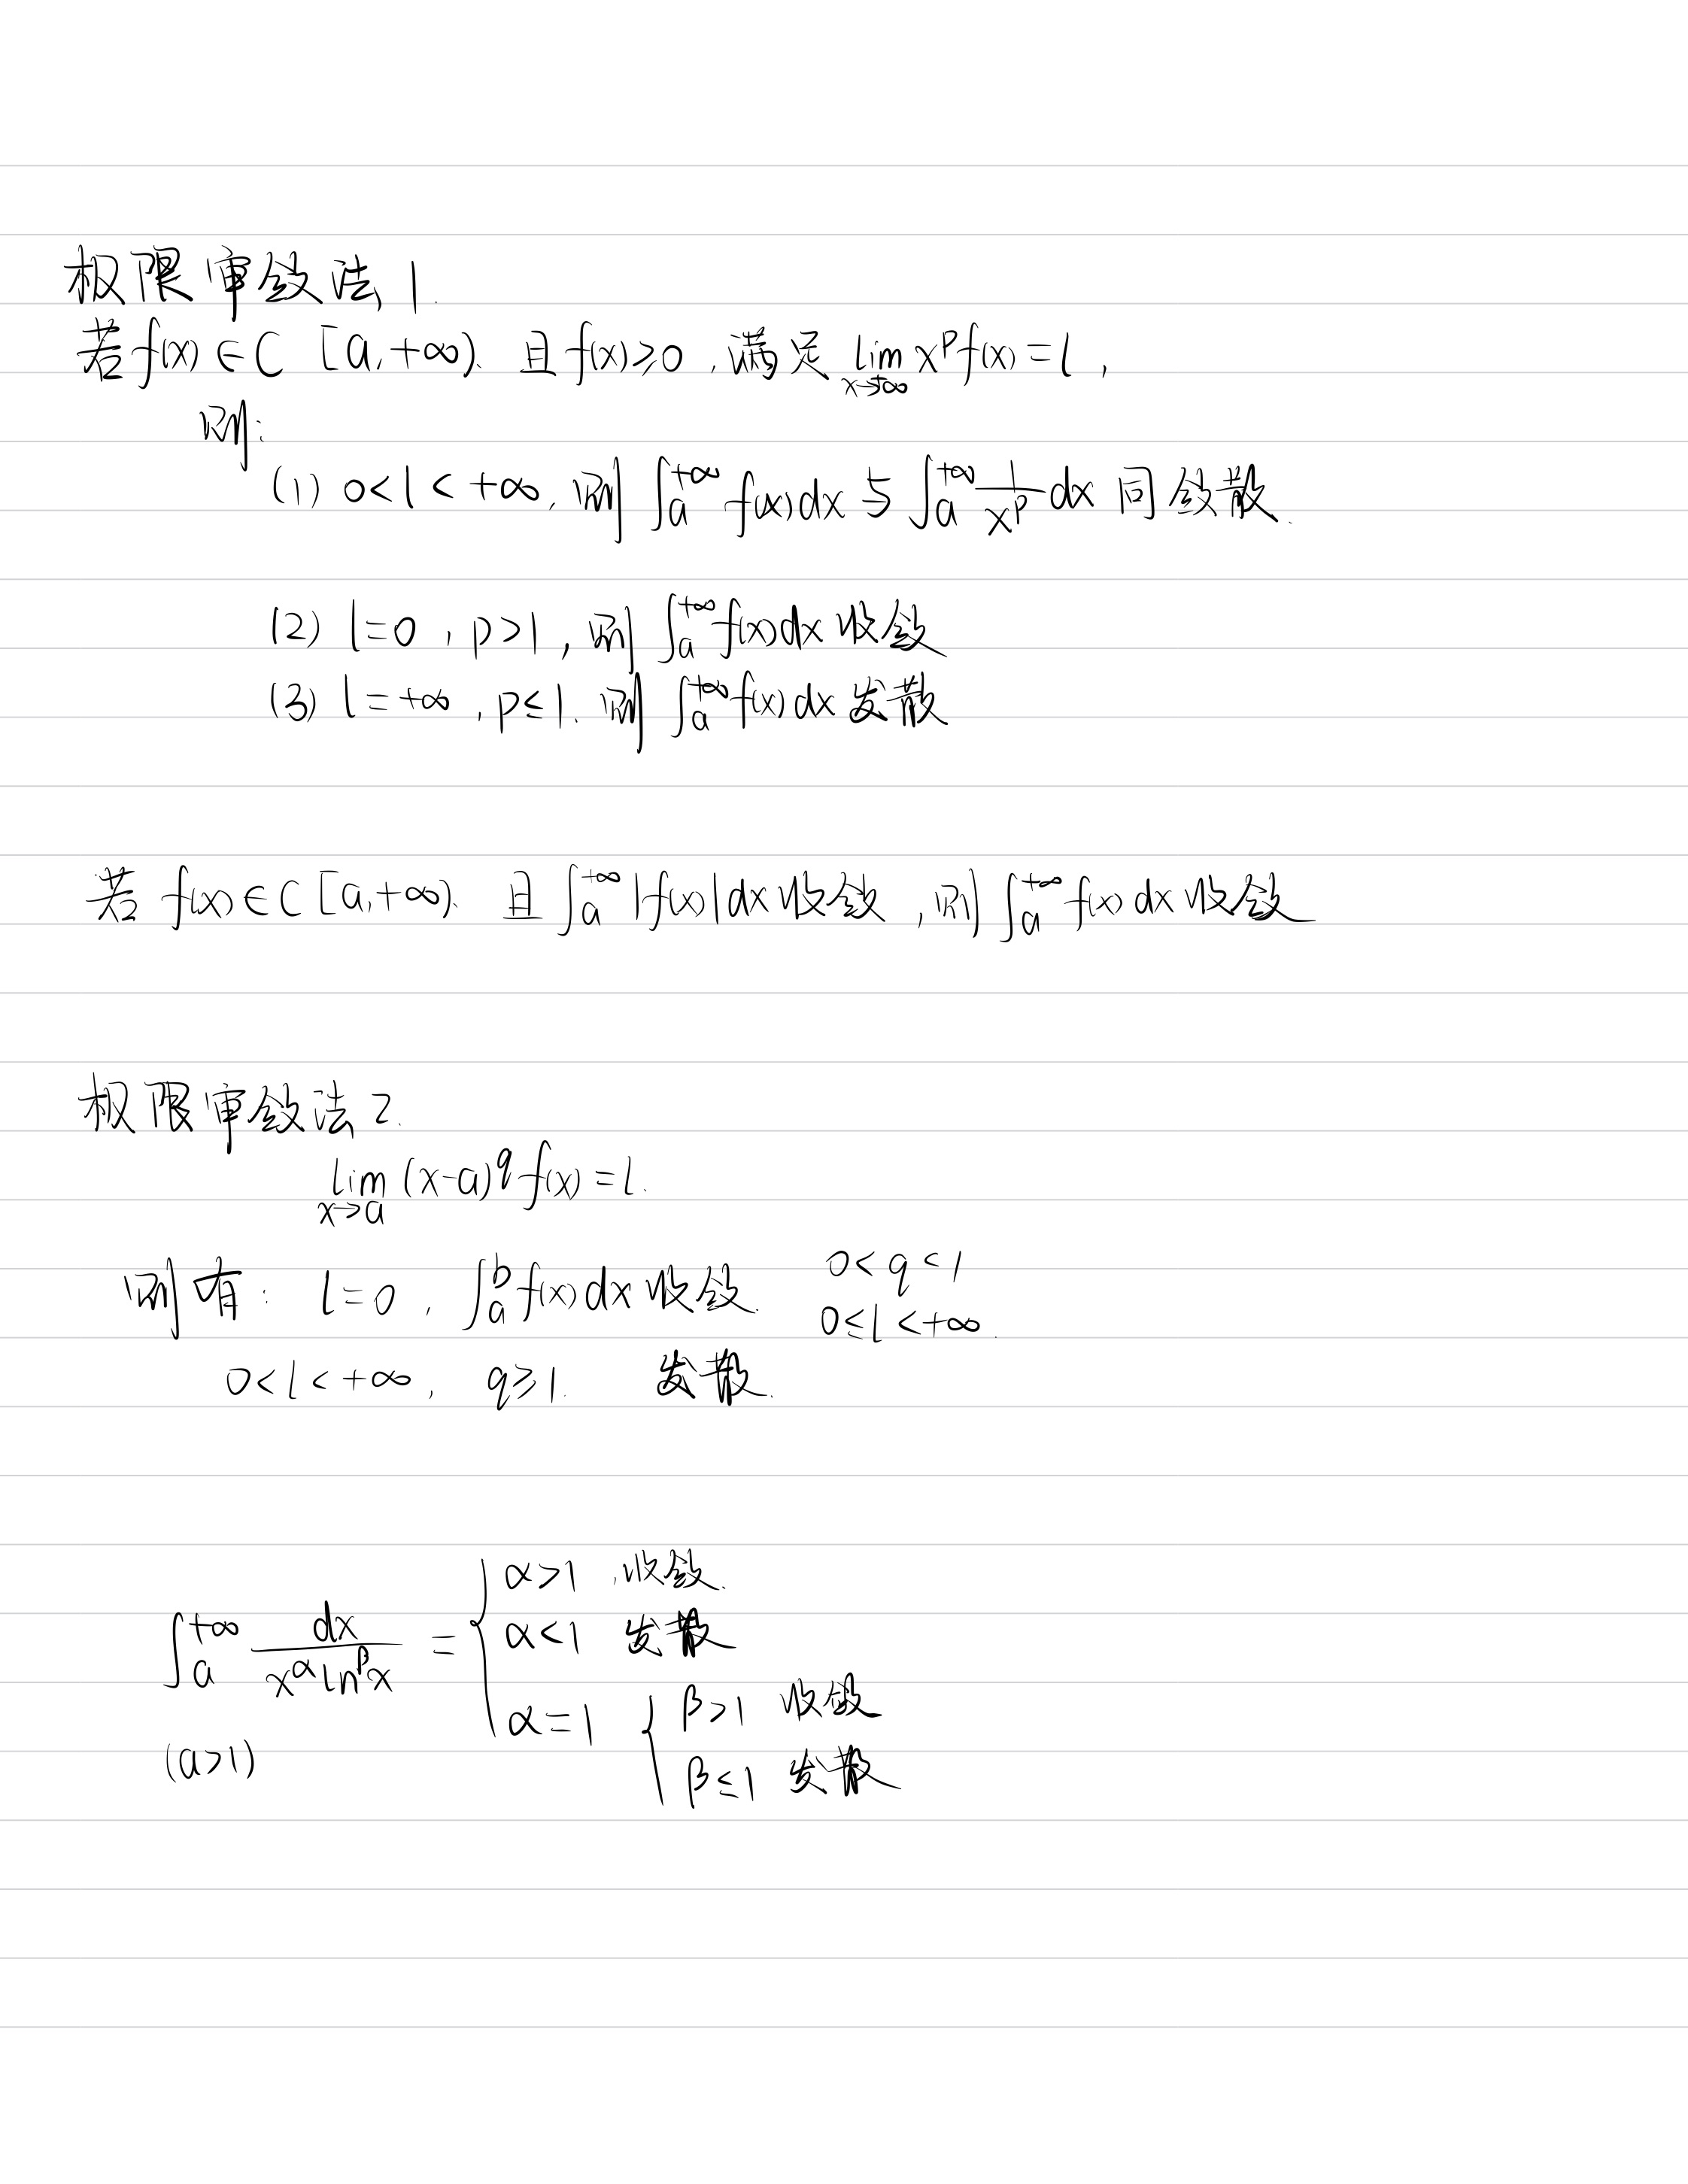 极限审敛法1.
若f(x)∈C [a,+∞). 且f(x)≥0,满足 lim_{x→+∞} x^p f(x)=l,
则:
(1) 0<l<+∞,则 ∫_a^{+∞} f(x)dx 与 ∫_a^{+∞} 1/x^p dx 同敛散.
(2) l=0, p>1, 则 ∫_a^{+∞} f(x)dx 收敛
(3) l=+∞, p≤1. 则 ∫_a^{+∞} f(x)dx 发散
若 f(x)∈C[a,+∞). 且 ∫_a^{+∞} |f(x)|dx 收敛,则 ∫_a^{+∞} f(x)dx 收敛
极限审敛法2.
lim_{x→a} (x-a)^q f(x)=l.
则有: l=0, ∫_a^b f(x)dx 收敛. 0<q<1
0≤l<+∞.
0<l<+∞, q≥1. 发散.
∫_a^{+∞} dx/(x^α ln^β x) = { α>1,收敛.
α<1 发散
α=1 { β>1 收敛
(a>1)
β≤1 发散